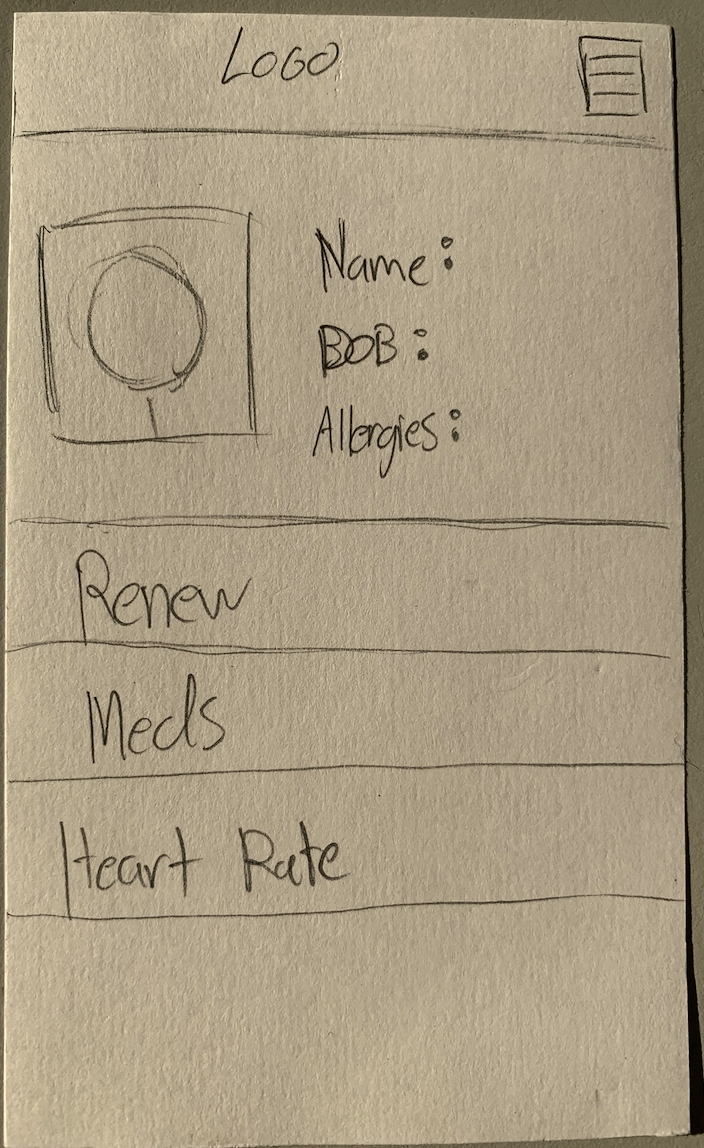 LOGO
Name:
DOB:
Allergies:
Renew
Meds
Heart Rate